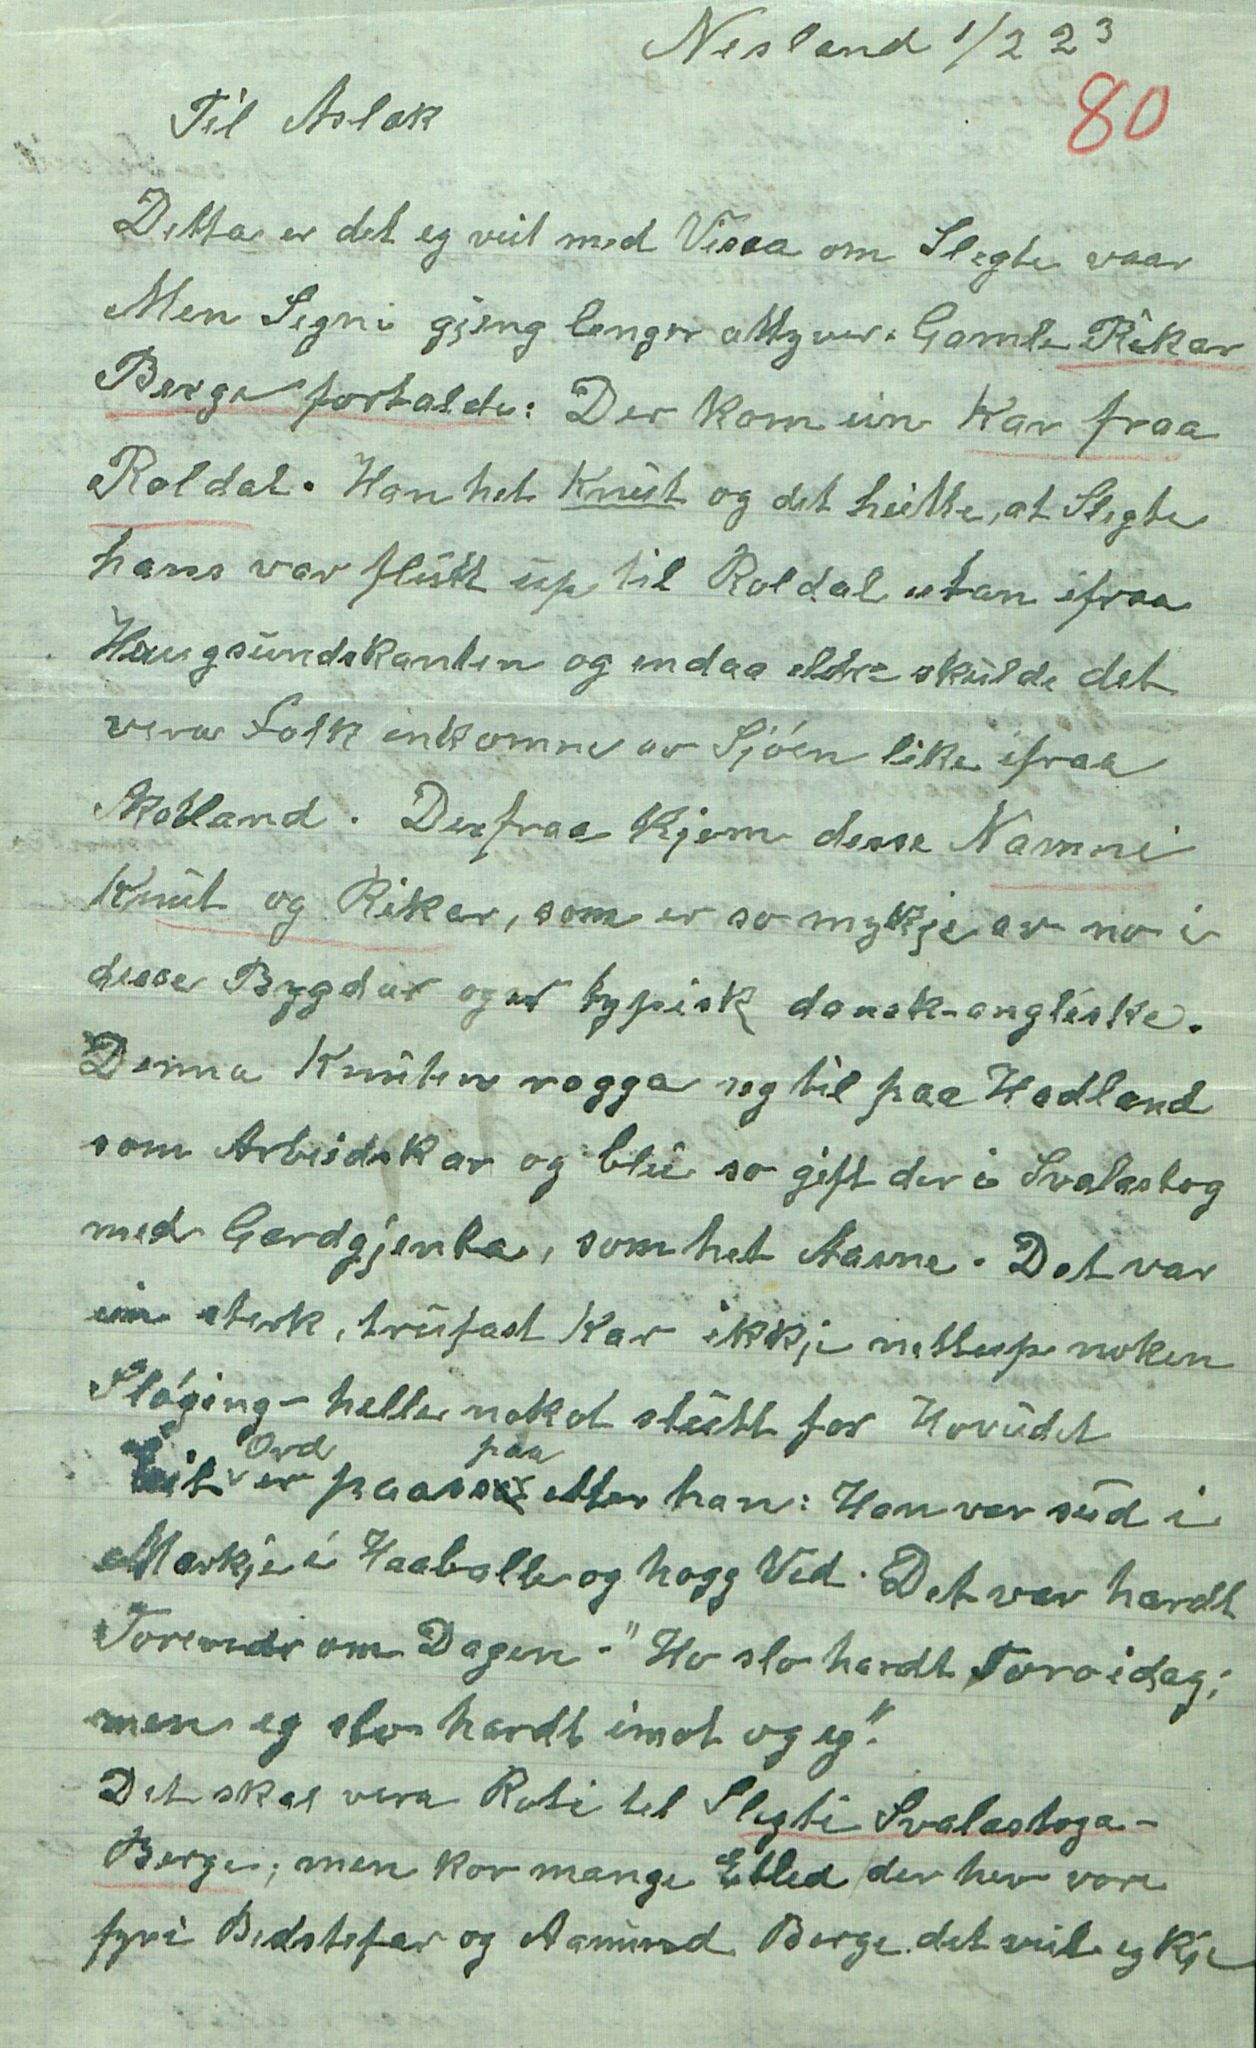 Nesland 1/2 23
80
Til Aslak
Detta er det eg veit med Vissa om Slegte vaar
Men Segni gjeng lenger attyver. Gamle Rikar
Berge fortalde: Der kom ein Kar fraa
Roldal. Han het Knut og det heitte, at Slegte
hans var flutt up til Roldal utan ifraa
Haugsundskanten og endaa eldre skulde det
vera Folk innkomne av Sjóen like ifraa
Skotland. Derfraa kjem desse Namni
Knut og Rikar, som er so mykje av no i
desse Bygdar og er typisk dansk-engleske.
Denna Knuten rogga seg til paa Hadland
som Arbeidskar og blei so gift der i Svalastog
med Gardgjenta, som het Aasne. Det var
ein sterk, trufast Kar ikkje nettup noken
Slóging - helle nokot stutt for Hovudet
eit Ord er paa etter han: Han var sud i
Markje i Haaballe og hogg Ved. Det var hardt
Torever om Dagen - "Ho slo hardt Toro idag;
men eg slo hardt imot og eg".
Det skal vera Roti til Slegti Svalastoga-
Berge; men kor mange Etled der hev vore
fyri Bedstefar og Aamund Berge det veit eg kje